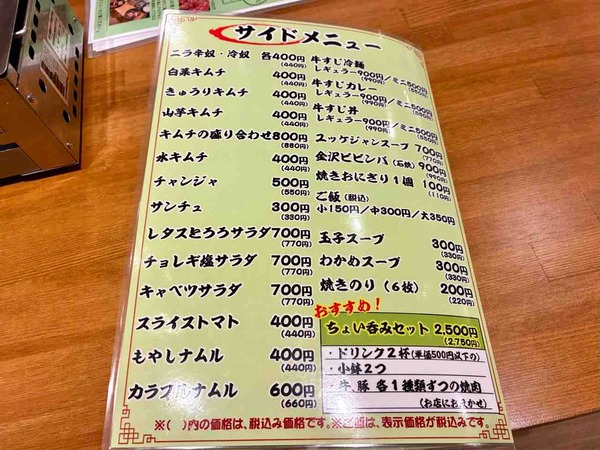 サイドメニュー
ニラ辛奴・冷奴 各400円
(440円)
白菜キムチ 400円
(440円)
きゅうりキムチ 400円
(440円)
山芋キムチ 400円
(440円)
キムチの盛り合わせ800円
(880円)
水キムチ 400円
(440円)
チャンジャ 500円
(550円)
サンチュ 300円
(330円)
レタスとろろサラダ700円
(770円)
チョレギ塩サラダ 700円
(770円)
キャベツサラダ 700円
(770円)
スライストマト 400円
(440円)
もやしナムル 400円
(440円)
カラフルナムル 600円
(660円)
牛すじ冷麺
レギュラー900円/ミニ500円
(990円) (550円)
牛すじカレー
レギュラー900円/ミニ500円
(990円) (550円)
牛すじ丼
レギュラー900円/ミニ500円
(990円) (550円)
ユッケジャンスープ 700円
(770円)
金沢ビビンバ(石焼)900円
(990円)
焼きおにぎり1個 100円
(110円)
ご飯(税込)
小150円/中300円/大350円
玉子スープ 300円
(330円)
わかめスープ 300円
(330円)
焼きのり(6枚) 200円
(220円)
おすすめ!
ちょい呑みセット 2,500円
(2,750円)
・ドリンク2杯(単価500円以下の)
・小鉢2つ
・牛、豚 各1種類ずつの焼肉
(お店におまかせ)
※( )内の価格は、税込み価格です。※ご飯は、表示価格が税込みです。